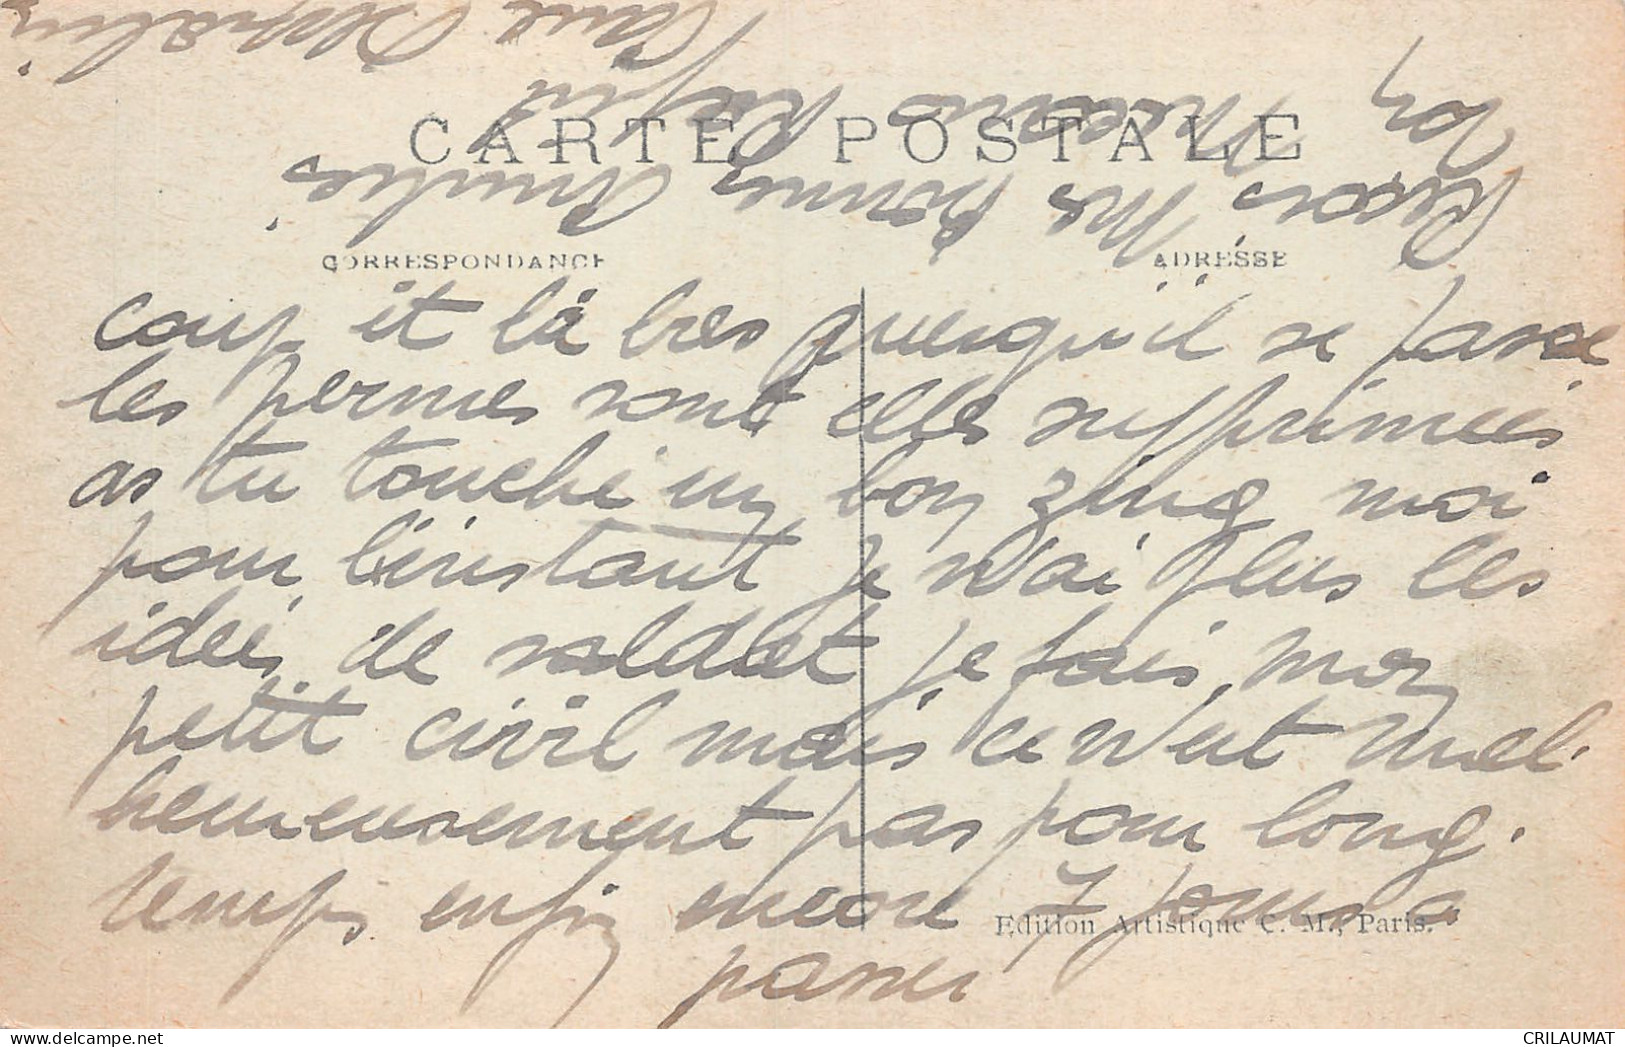 CARTE POSTALE
CORRESPONDANCE
ADRESSE
coup et là bas qu'esqu'il se passe
les permes sont elles supprimées
as tu touché un bon zing moi
pour l'instant je n'ai plus les
idées de soldat je fais mon
petit civil mais ce n'est mal-
heureusement pas pour long-
temps enfin encore 7 jours a
passer
Reçois Mes bonnes Amitiés
Ton
Edition Artistique C. M., Paris.
CRILAUMAT